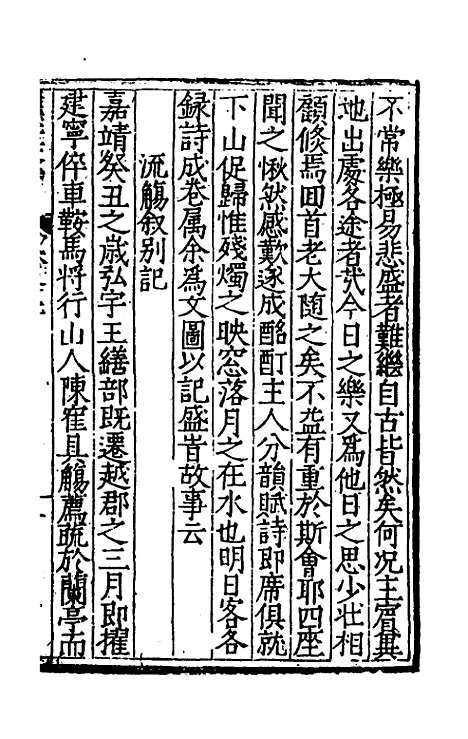 不常樂極易悲盛者難繼自古皆然矣何况主賓異
地出處各途者㢤今日之樂又爲他日之思少壯相
顧倐焉囬首老大随之矣不益有重於斯會耶四座
聞之愀然感歎遂成酩酊主人分韻賦詩即席俱就
下山促歸惟殘燭之映窓落月之在水也明日客各
録詩成卷属余爲文圖以記盛㫖故事云
流觴叙别記
嘉靖癸丑之歳弘宇王繕部既遷越郡之三月即擢
建寧倅車鞍馬將行山人陳隺具觴薦蔬於蘭亭而